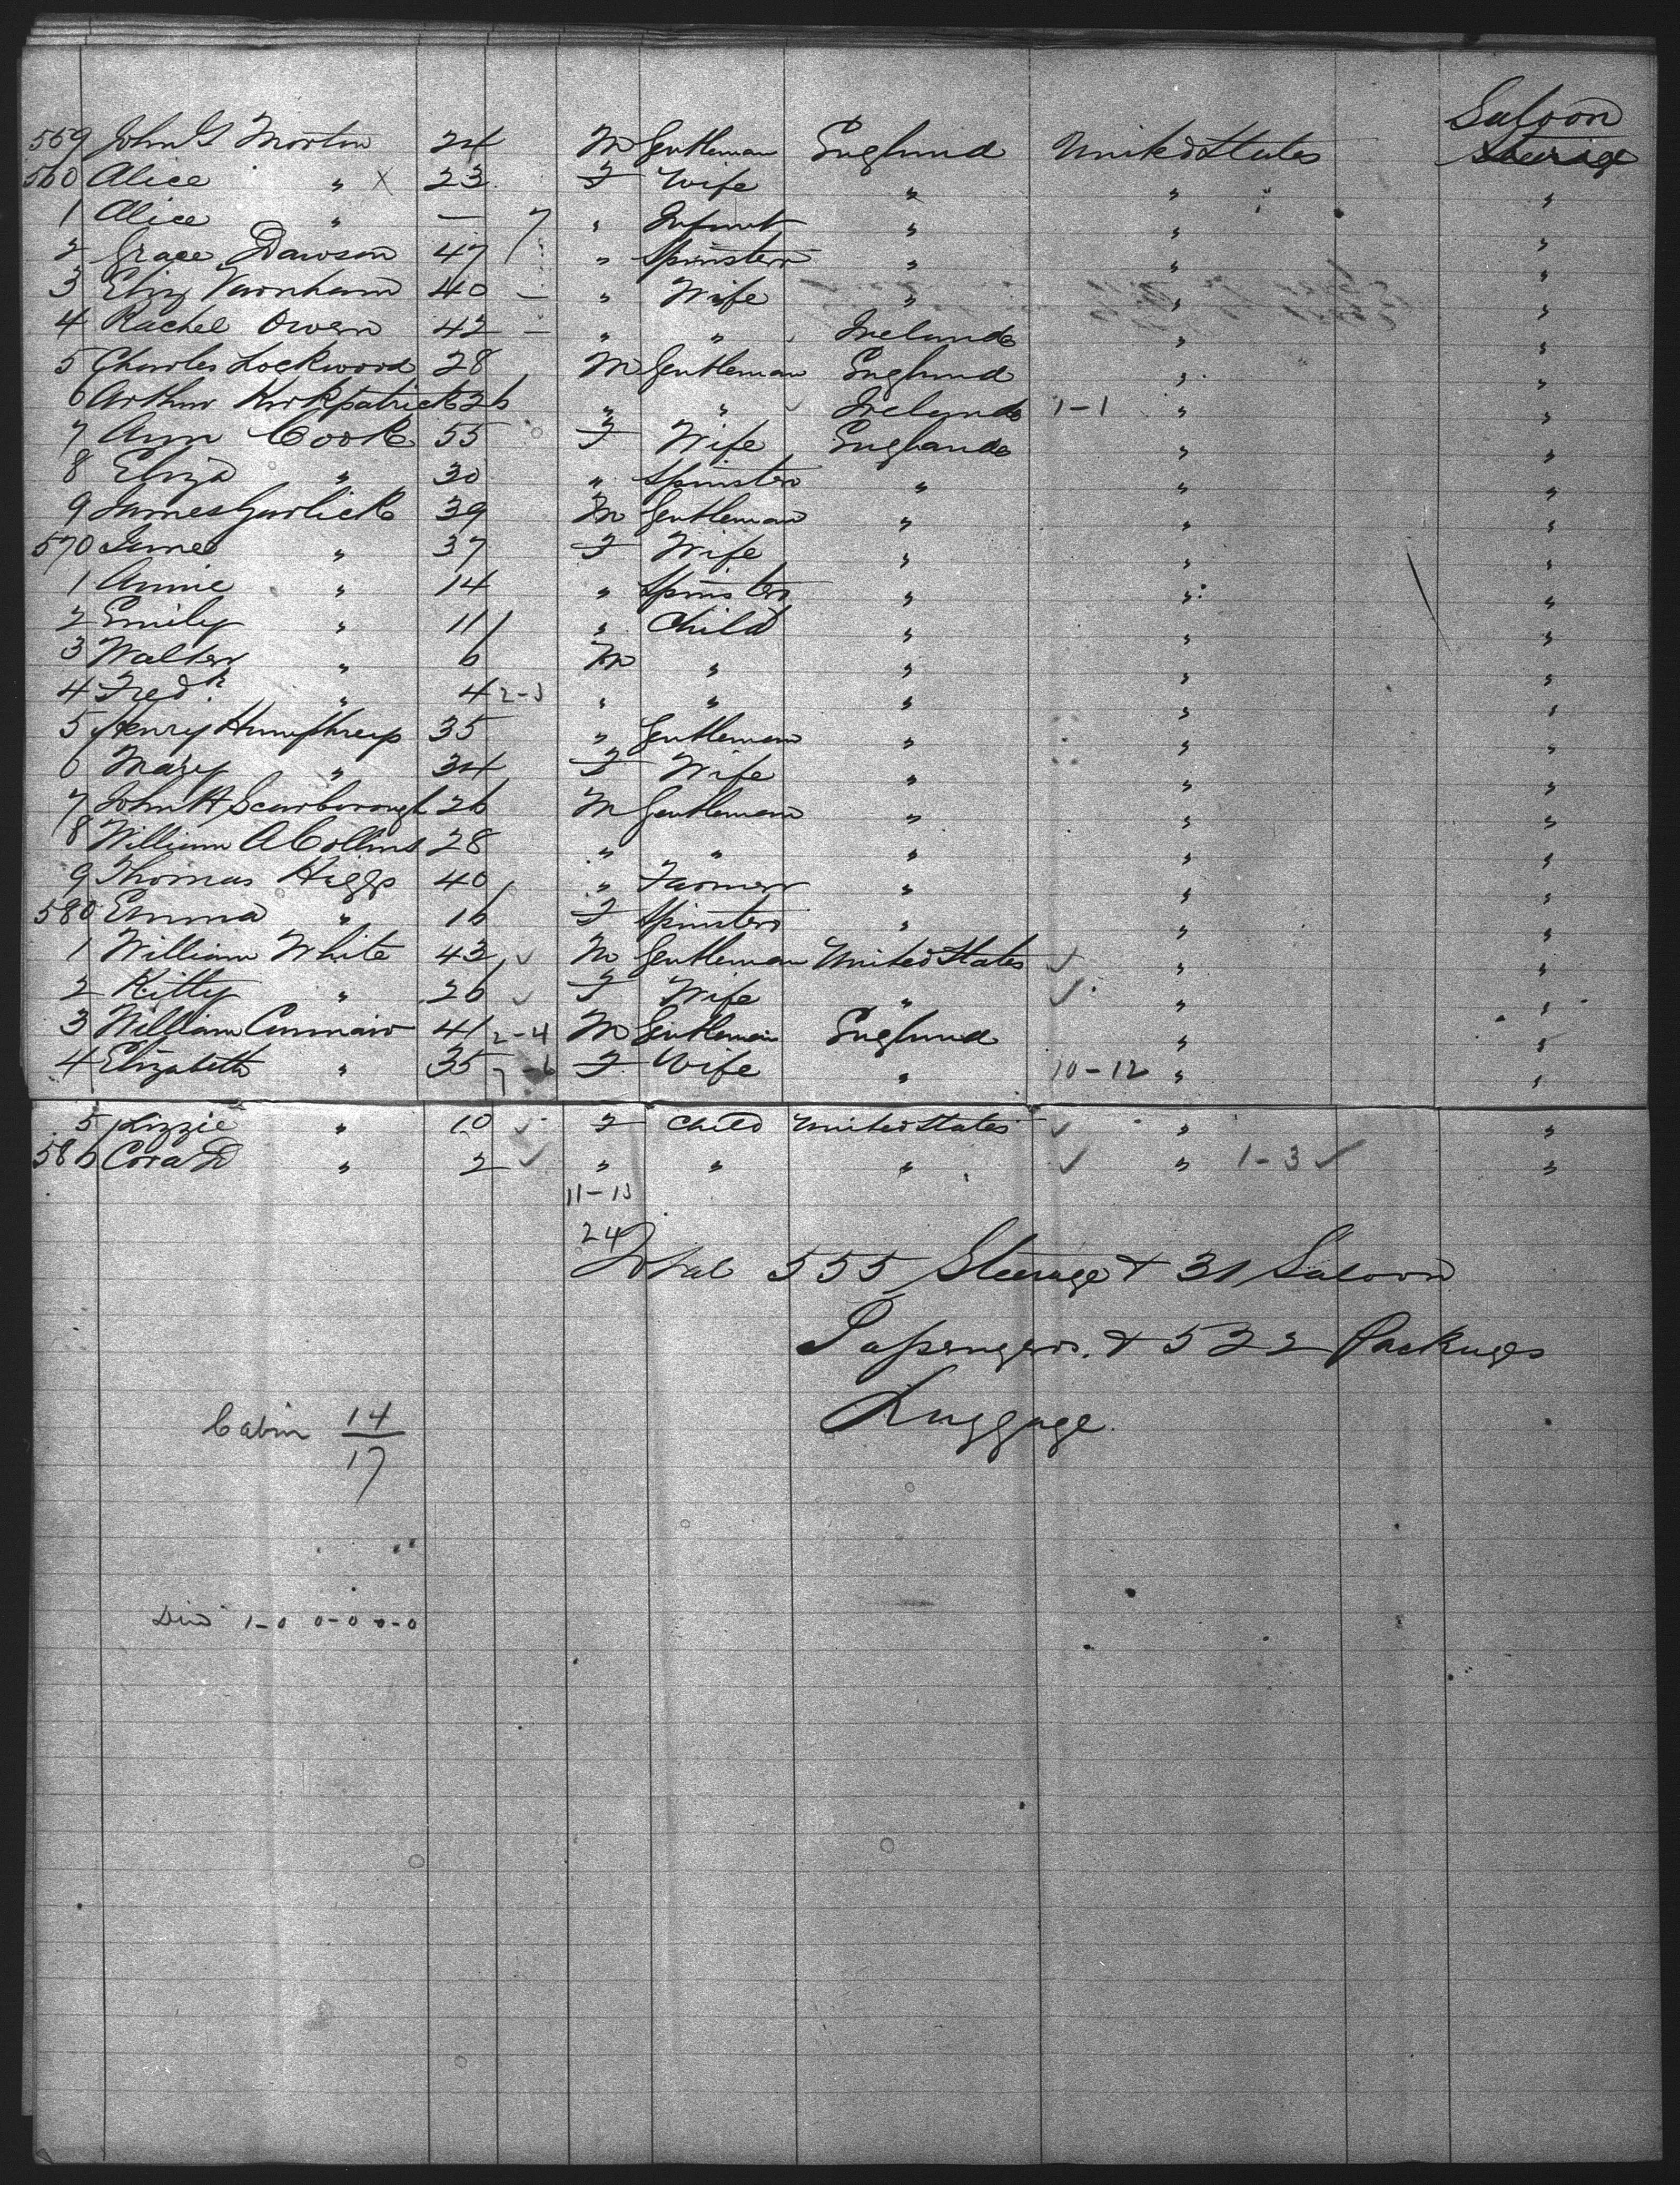 Saloon
559 John G Morton 24 M Gentleman England United States Steerage
560 Alice " X 23 F Wife " " "
1 Alice " — 7 " Infant " " "
2 Grace Dawson 47 " Spinster " " "
3 Eliz Varnham 40 — " Wife " " "
4 Rachel Owen 42 — " " Ireland " "
5 Charles Lockwood 28 M Gentleman England " "
6 Arthur Kirkpatrick 26 " " Ireland 1-1 " "
7 Ann Cook 55 F Wife England " "
8 Eliza " 30 " Spinster " " "
9 James Garlick 39 M Gentleman " " "
570 " 37 F Wife " " "
1 Annie " 14 " Spinster " " "
2 Emily " 11 " Child " " "
3 Walter " 6 M " " " "
4 Fredk " 4 2-3 " " " " "
5 Henry Humphreys 35 " Gentleman " " "
6 Mary " 34 F Wife " " "
7 John H Scarborough 26 M Gentleman " " "
8 William A Collins 28 " " " " "
9 Thomas Higgs 40 " Farmer " " "
580 Emma " 16 F Spinster " " "
1 William White 43 ✓ M Gentleman United States ✓ " "
2 Kitty " 26 ✓ F Wife " ✓ " "
3 William 41 2-4 M Gentleman England " "
4 Elizabeth " 35 7-6 F Wife " 10-12 " "
5 Lizzie " 10 ✓ F Child United States ✓ " "
586 Cora D " 2 ✓ " " " ✓ " 1-3 ✓ "
11-13
24
Total 555 Steerage & 31 Saloon
Passengers. & 522 Packages
Luggage.
Cabin 14
17
Died 1-0 0-0 0-0